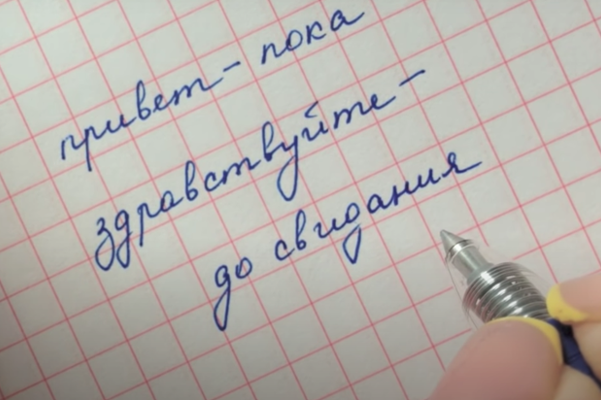 привет - пока
здравствуйте -
до свидания